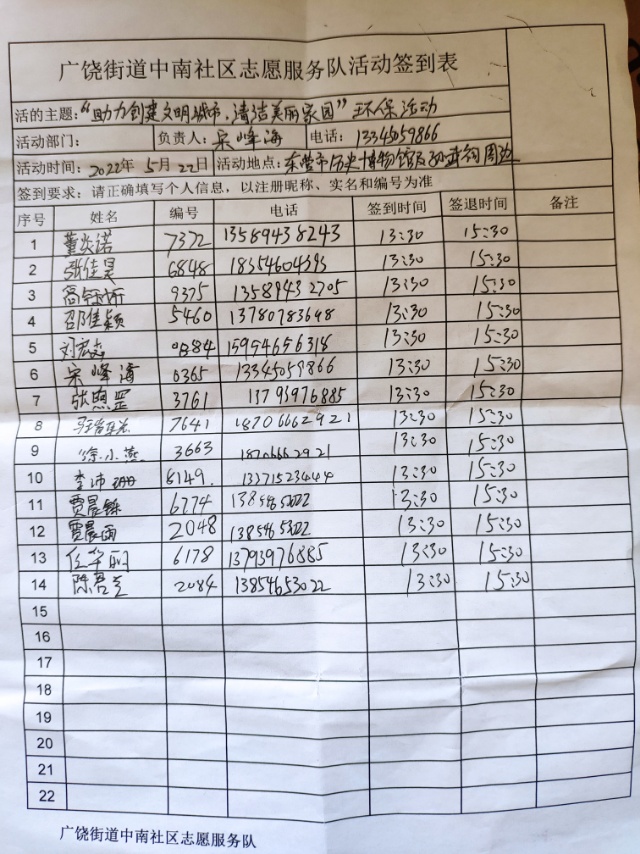 广饶街道中南社区志愿服务队活动签到表
活的主题：“助力创建文明城市，清洁美丽家园”环保活动
活动部门： 负责人：宋峰海 电话：13345059866
活动时间：2022年5月22日 活动地点：东营市历史博物馆及孙武祠周边
签到要求：请正确填写个人信息，以注册昵称、实名和编号为准
序号 姓名 编号 电话 签到时间 签退时间 备注
1 董炎诺 7372 13589438243 13:30 15:30
2 张佳昊 6848 18354604393 13:30 15:30
3 高钰妍 9375 13589432705 13:30 15:30
4 邵佳颖 5460 13780783648 13:30 15:30
5 刘宏 0884 15954656314 13:30 15:30
6 宋峰海 0365 13345059866 13:30 15:30
7 张照罡 3761 13793976885 13:30 15:30
8 7641 18706662921 13:30 15:30
9 徐小燕 3663 18706662921 13:30 15:30
10 李沛珊 8149. 13371523444 13:30 15:30
11 贾晨铄 6774 13854653022 13:30 15:30
12 贾晨雨 2048 13854653022 13:30 15:30
13 任华丽 6178 13793976885 13:30 15:30
14 陈君 2084 13854653022 13:30 15:30
15
16
17
18
19
20
21
22
广饶街道中南社区志愿服务队